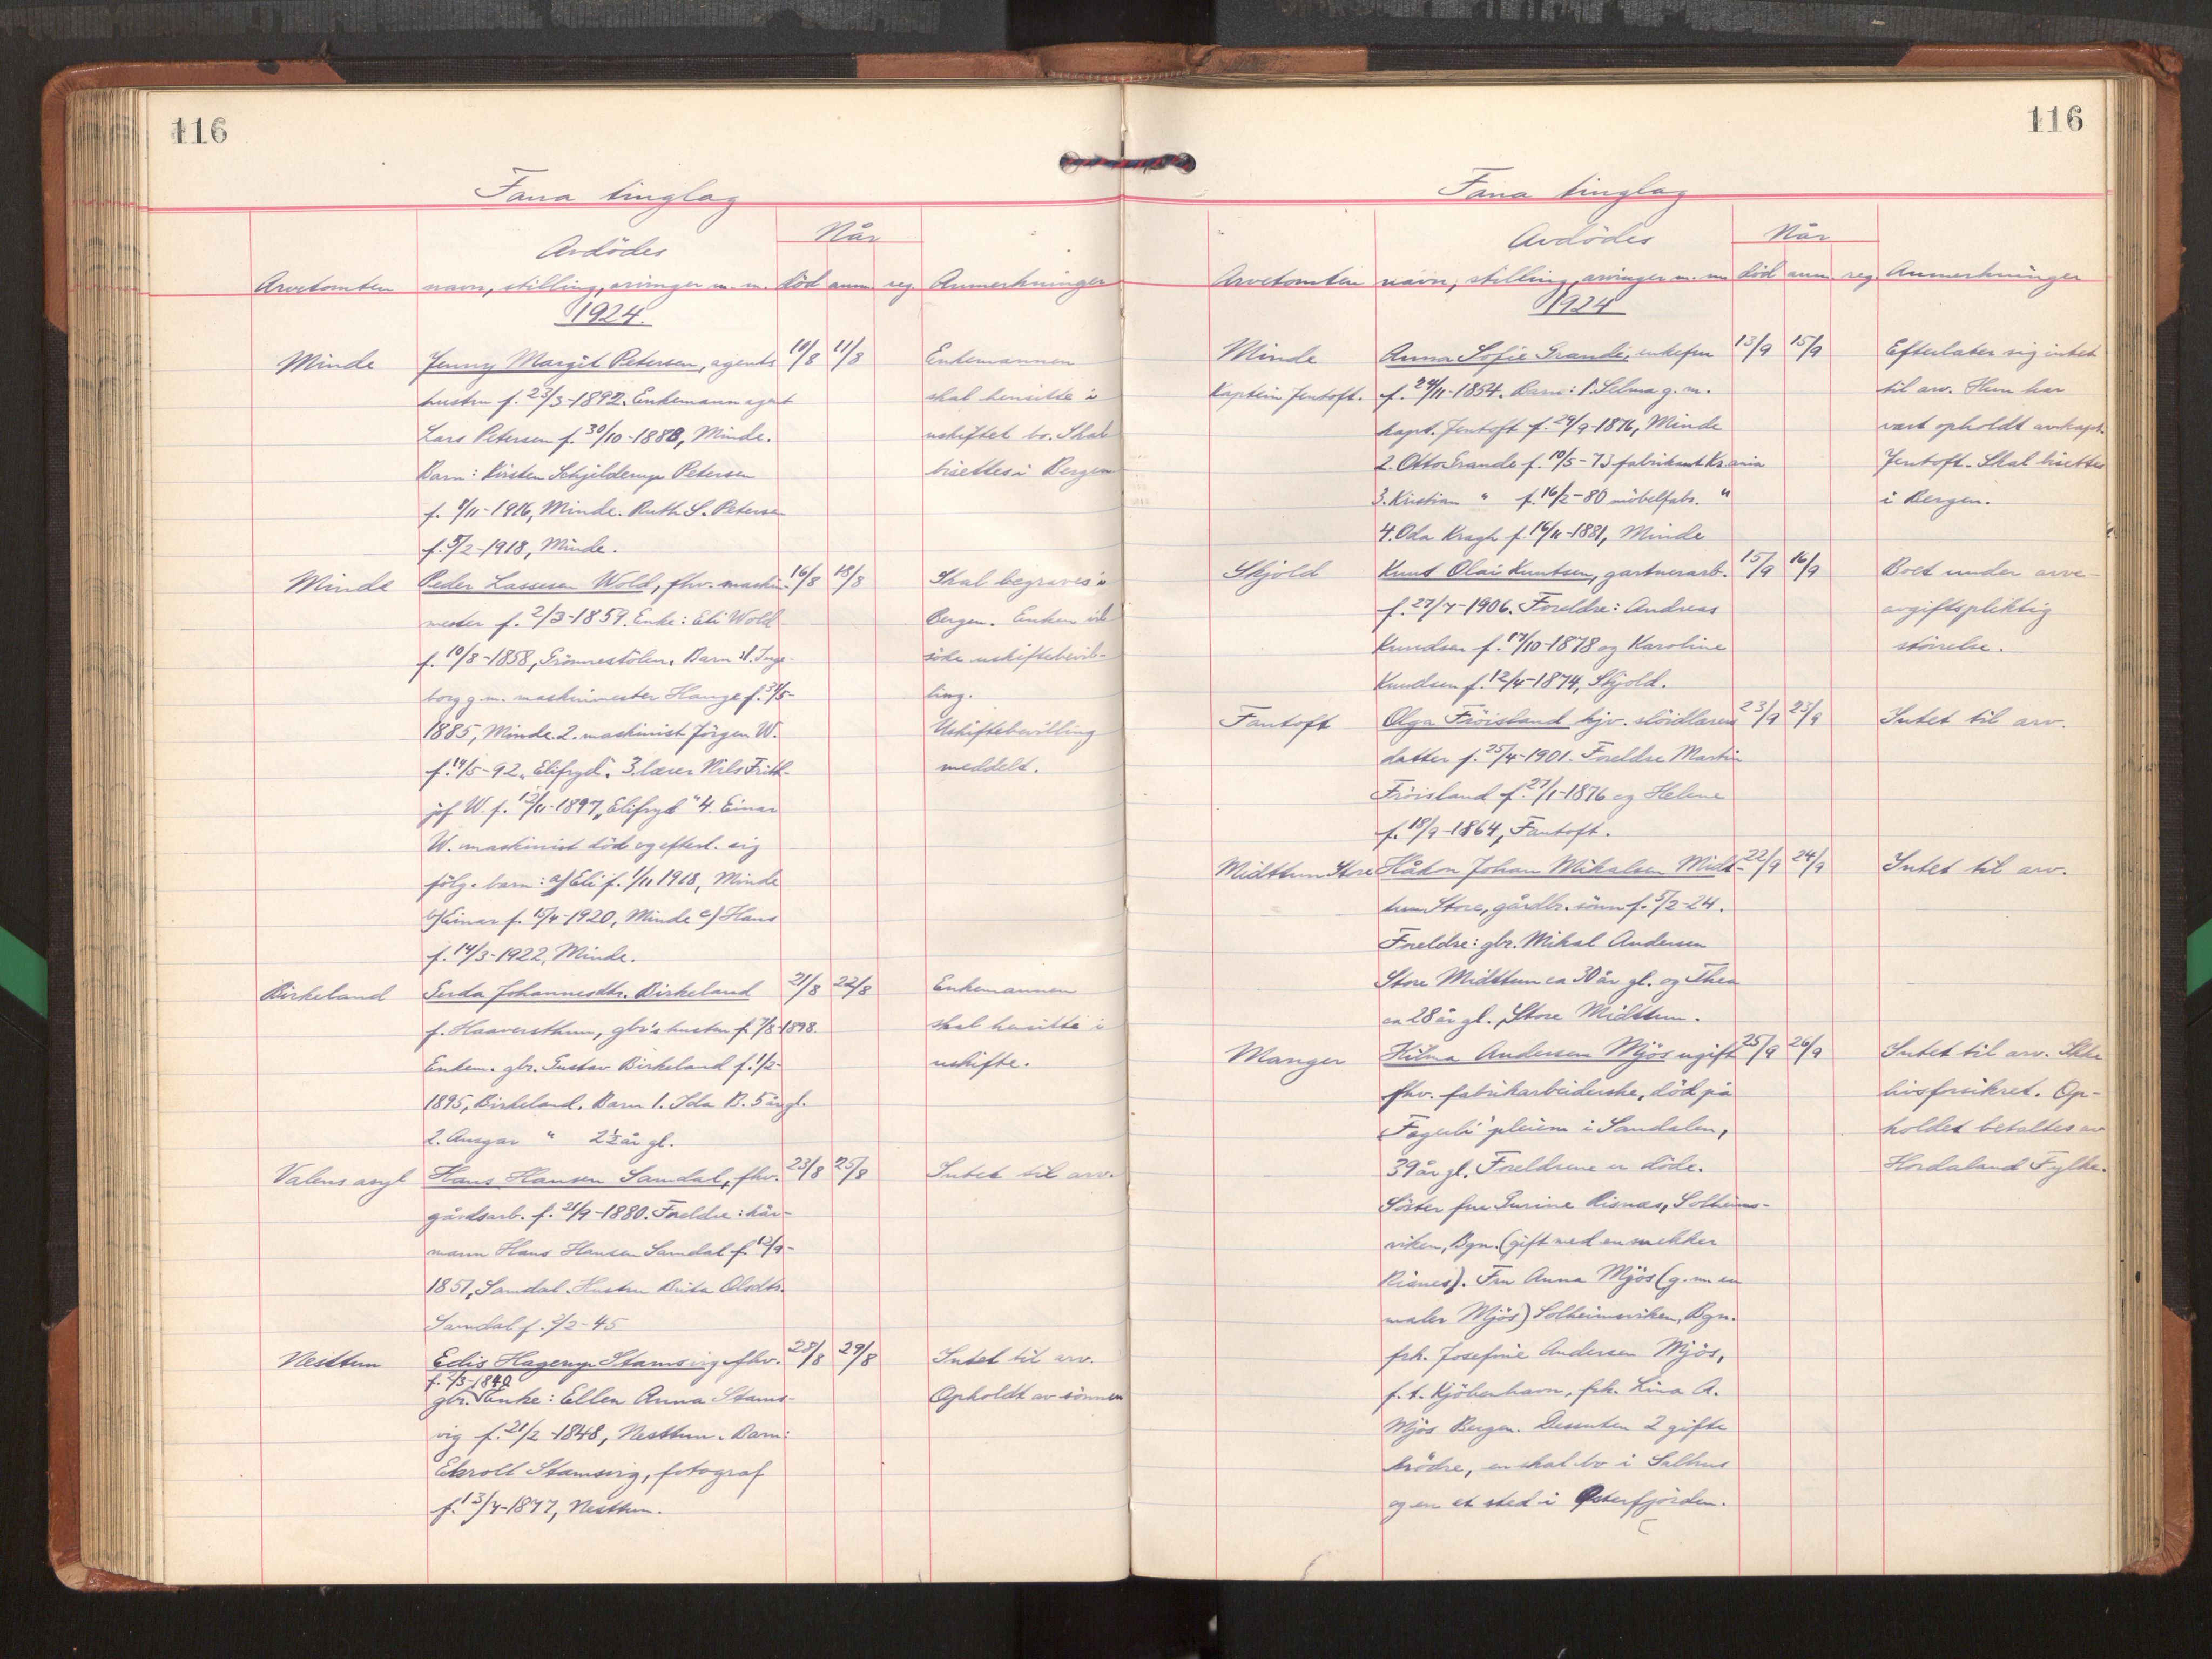 116
Fana tinglag
Når
Avdödes
Arvetomten navn, stilling, arvinger m. m. död anm. reg. Anmerkninger
1924.
Minde Jenny Margit Petersen, agents 10/8 11/8 Enkemannen
hustru f. 23/3-1892. Enkemann agent skal hensitte i
Lars Petersen f. 30/10-1888, Minde. uskiftet bo. Skal
Barn: Kirsten Schjelderup Petersen bisettes i Bergen
f. 8/11-1916, Minde. Ruth S. Petersen
f. 5/2-1918, Minde.
Minde Peder Lassesen Wold, fhv. maskin- 16/8 18/8 Skal begraves i
mester f. 2/3-1859. Enke: Eli Wold Bergen. Enken vil
f. 10/8-1858, Grönnestölen. Barn: 1. Inge- söke uskiftebevil-
borg g.m. maskinmester Hauge f. 31/5- ling.
1885, Minde. 2. maskinist Jörgen W. Uskiftebevilling
f. 14/5-92 "Elifryd". 3. lærer Nils Frith- meddelt.
jof W. f. 12/11-1897 "Elifryd" 4. Einar
W. maskinist död og efterl. sig
fölg. barn: a) Eli f. 1/11 1918, Minde
b) Einar f. 15/4-1920, Minde c) Hans
f. 14/3-1922, Minde.
Birkeland Gerda Johannesdtr. Birkeland 21/8 22/8 Enkemannen
f. Haaversthun, gbr's hustru f. 7/8-1898. skal hensitte i
Enkem. gbr. Gustav Birkeland f. 1/2- uskifte.
1895, Birkeland. Barn 1. Ida B. 5 år gl.
2. Ansgar " 2½ år gl.
Valens asyl Hans Hansen Samdal, fhv. 23/8 25/8 Intet til arv.
gårdsarb. f. 21/9-1880. Foreldre: kår-
mann Hans Hansen Samdal f. 12/9-
1851, Samdal. Hustru Brita Olsdtr.
Samdal f. 2/2-45
Nesttun Edis Hagerup Stamsvig fhv. 28/8 29/8 Intet til arv.
f. 2/3-1840
gbr. Enke: Ellen Anna Stams- Opholdt av sönnen
vig f. 21/2-1848, Nesttun. Barn:
Ekroll Stamsvig, fotograf
f. 13/4-1877, Nesttun.
116
Fana tinglag
Når
Avdödes
Arvetomten navn, stilling, arvinger m. m. död anm. reg. Anmerkninger
1924
Minde Anna Sofie Grande, enkefru 13/9 15/9 Efterlater sig intet
Kaptein Jentoft. f. 24/11-1854. Barn: 1. Selma g. m. til arv. Hun har
kapt. Jentoft f. 29/9-1876, Minde vært opholdt av kapt.
2. Otto Grande f. 10/5-73 fabrikant Kr.ania Jentoft. Skal bisettes
3. Kristian " f. 16/2-80 möbelfabr. " i Bergen.
4. Oda Kragh f. 16/11-1881, Minde
Skjold Knut Olai Knutsen, gartnerarb. 15/9 16/9 Boet under arve-
f. 27/7-1906. Foreldre: Andreas avgiftspliktig
Knudsen f. 17/10-1878 og Karoline störrelse.
Knudsen f. 12/4-1874, Skjold.
Fantoft Olga Fröisland hjv. slöidlærers 23/9 25/9 Intet til arv.
datter f. 25/4-1901. Foreldre Martin
Fröisland f. 27/1-1876 og Helene
f. 18/9-1864, Fantoft.
Midttun Store Håkon Johan Mikalsen Midt- 22/9 24/9 Intet til arv.
tun Store, gårdbr. sönn f. 5/2-24.
Foreldre: gbr. Mikal Andersen
Store Midttun ca 30 år gl. og Thea
ca 28 år gl. Store Midttun.
Manger Hilma Andersen Mjös ugift 25/9 26/9 Intet til arv. Ikke
fhv. fabrikarbeiderske, död på livsforsikret. Op-
Fagerli pleiem i Sandalen, holdet betaltes av
39 år gl. Foreldrene er döde. Hordaland Fylke.
Söster fru Gurine Risnes, Solheims-
viken, Bgn. (gift med en snekker
Risnes). Fru Anna Mjös (g. m. en
maler Mjös) Solheimsviken, Bgn.
frk. Josefine Andersen Mjös,
f. t. Kjöbenhavn, frk. Lina A.
Mjös Bergen. Dessuten 2 gifte
brödre, en skal bo i Salhus
og en et sted i Osterfjorden.